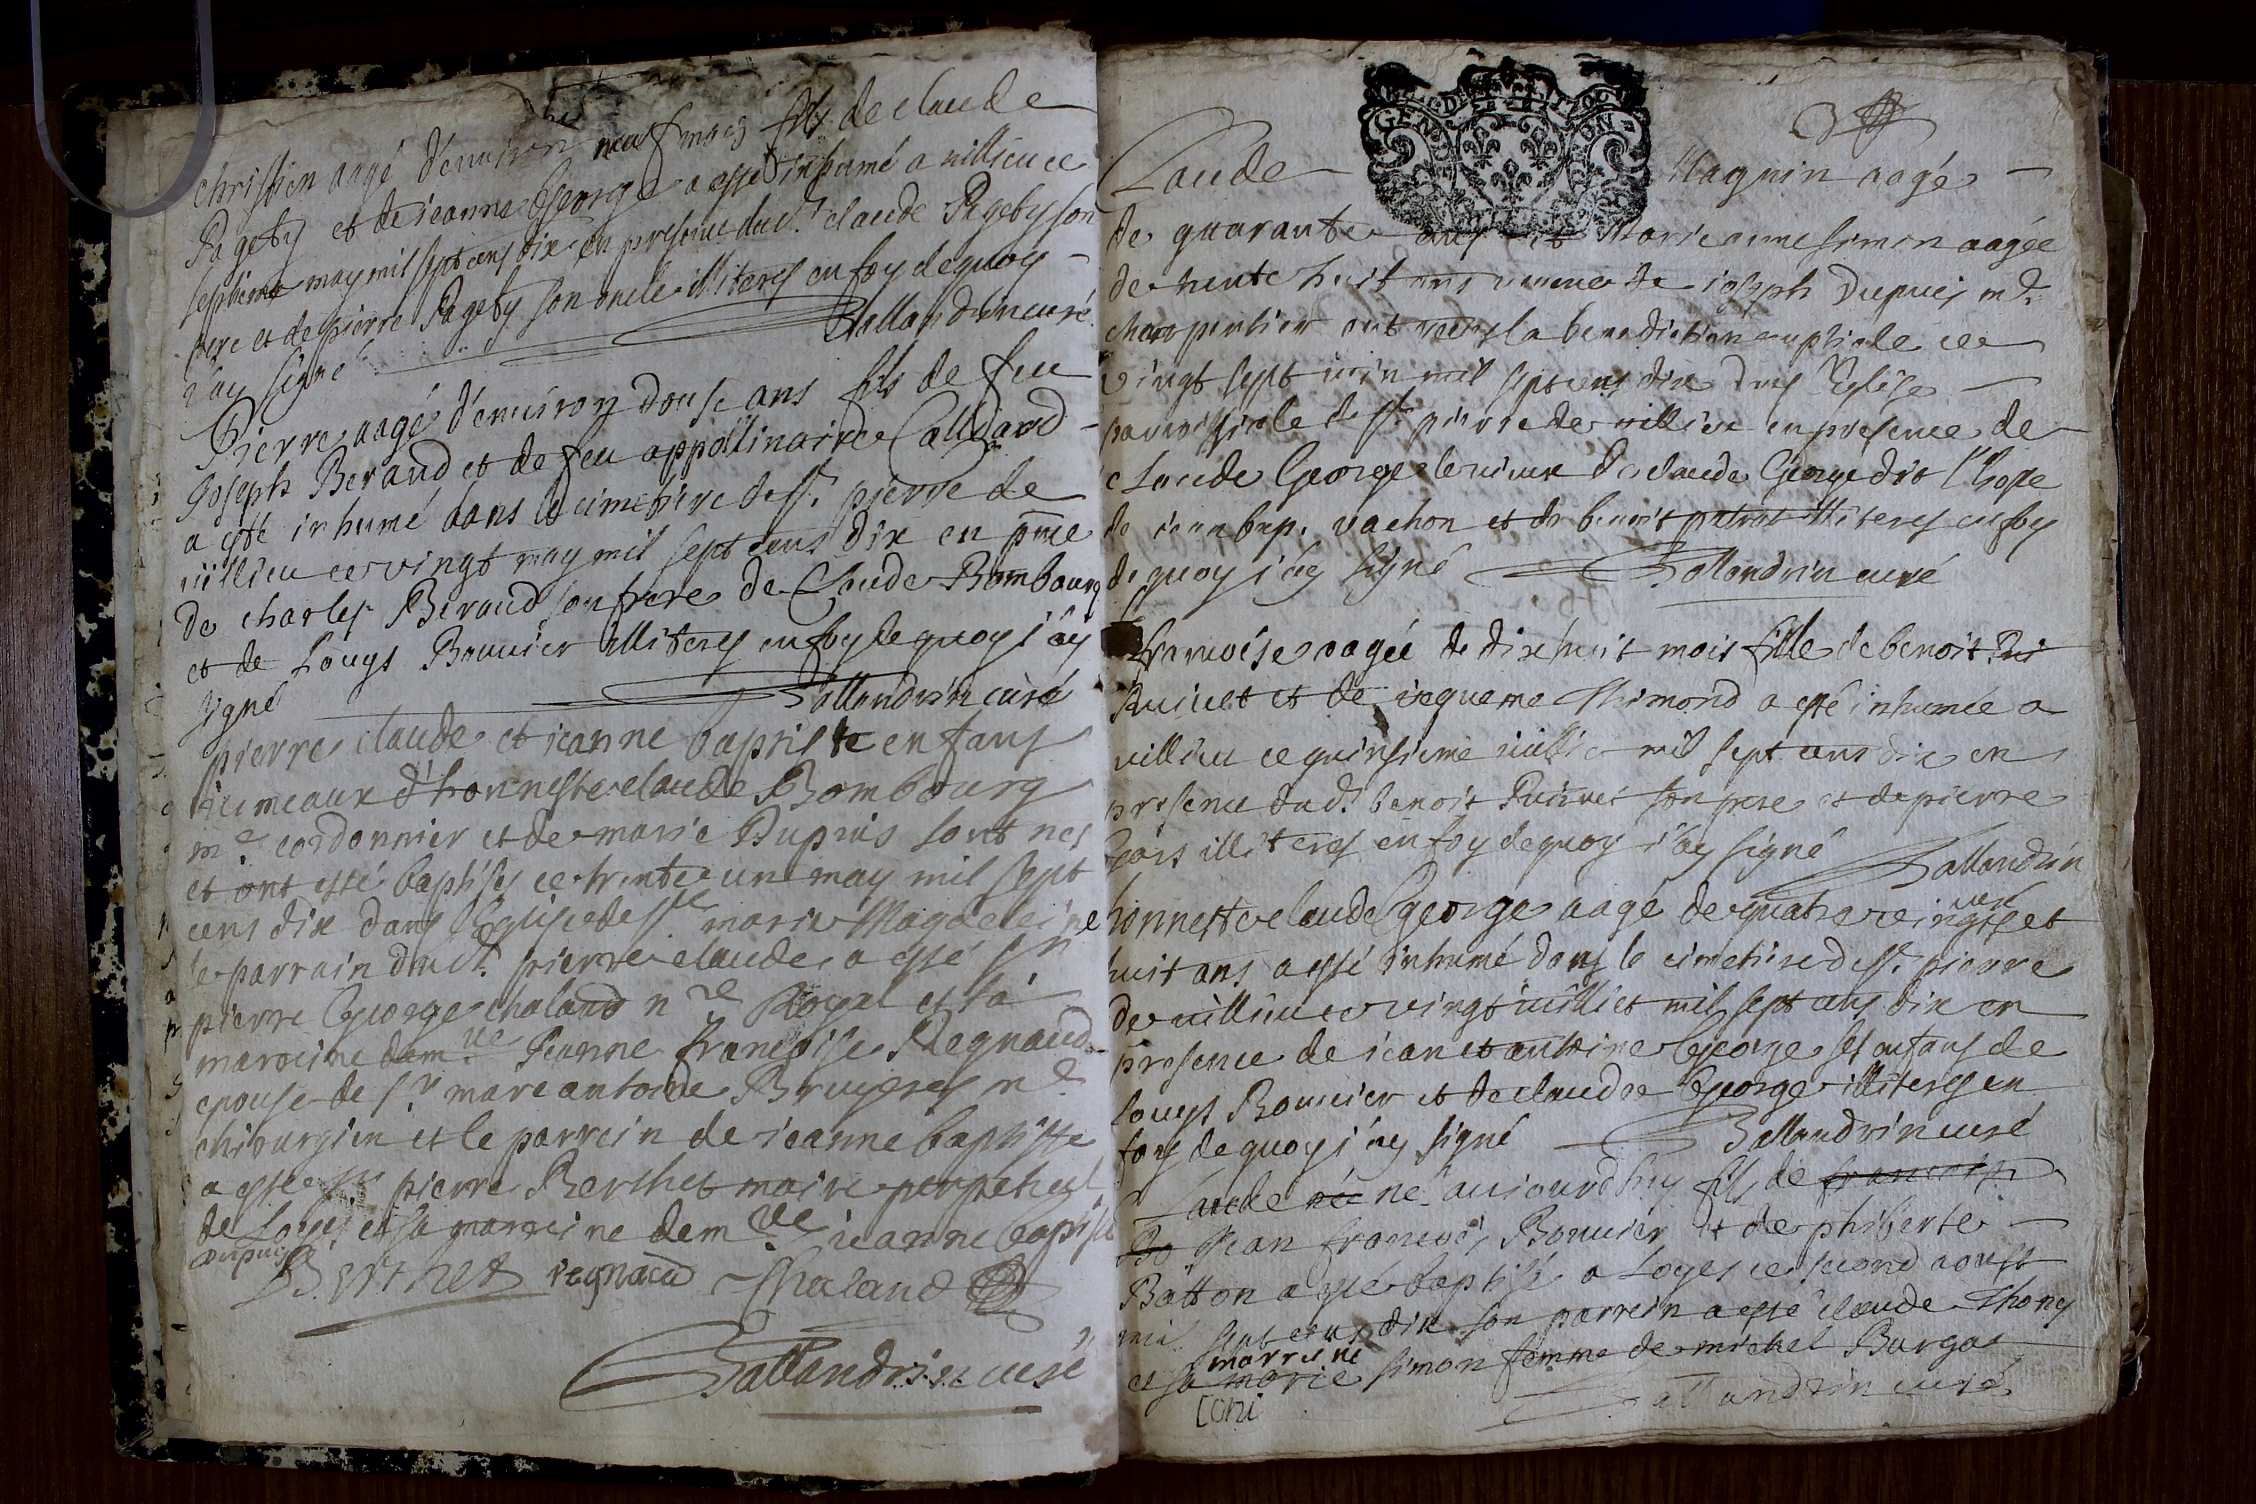 christien aagé d'environ neuf mois fils de claude
Pageby et de ieanne George a esté inhumé a villieu ce
septieme may mil sept cens dix en presence dud. claude Pageby son
pere et de pierre Pageby son oncle illiteres en foy de quoy
i'ay signé Ballandrin curé
Pierre aagé d'environ douse ans fils de feu
Joseph Beraud et de feu appollinaire
a esté inhumé dans le cimetiere de st. pierre de
villieu ce vingt may mil sept cens dix en pnce
de charles Beraud son frere de Claude Bombourg
et de Louys Bouvier illiteres en foy de quoy i'ay
signé Ballandrin curé
pierre claude et ieanne baptiste enfans
iumeaux d'honneste claude Bombourg
me. cordonnier et de marie Dupuis sont nes
et ont esté baptisés ce trente un may mil sept
cens dix dans l'Eglise de ste marie Magdeleine
le parrain dud. pierre claude a esté sr
pierre George chaland nre Royal et sa
marreine damlle Jeanne françoise Regnaud
epouse de sr marc antoine Bruyeres me
chirurgien et le parrein de ieanne baptiste
a esté sr pierre Berthet maire perpetuel
de Loyes et sa marreine demlle ieanne baptiste
dupuis
Berthet regnaud Chaland
Ballandrin curé
Claude Maguin aagé
de quarante ans et Marie anne simon aagée
de trente huit ans veuve de ioseph Dupuis md.
charpentier ont receus la benediction nuptiale ce
vingt sept iuin mil sept cens dix dans l'Eglise
parroissiale de st. pierre de villieu en presence de
claude George le vieux de claude George dit
de iean bap. vachon et de benoit illiteres en foy
de quoy i'ay signé Ballandrin curé
françoise aagée de dix huit mois fille de benoit
et de iaqueme Thimond a esté inhumée a
villieu ce quinsieme iuillie mil sept cens dix en
presence dud. benoit son pere et de pierre
illiteres en foy de quoy i'ay signé Ballandrin
curé
honneste claude George aagé de quatre vingts et
huit ans a esté inhumé dans le cimetiere de st. pierre
de villieu ce vingt iuilliet mil sept cens dix en
presence de iean et antoine George ses enfans de
Louys Bouvier et de claude George illiteres en
foy de quoy i'ay signé Ballandrin curé
Claude née né auiourd'huy fils de francois
Bo Jean francois Bouvier et de phiberte
Batton a esté baptisé a Loyes ce second aoust
mil sept cens dix son parrein a esté claude Thony
marreine
et sa marie simon femme de michel Burgat
Ballandrin curé